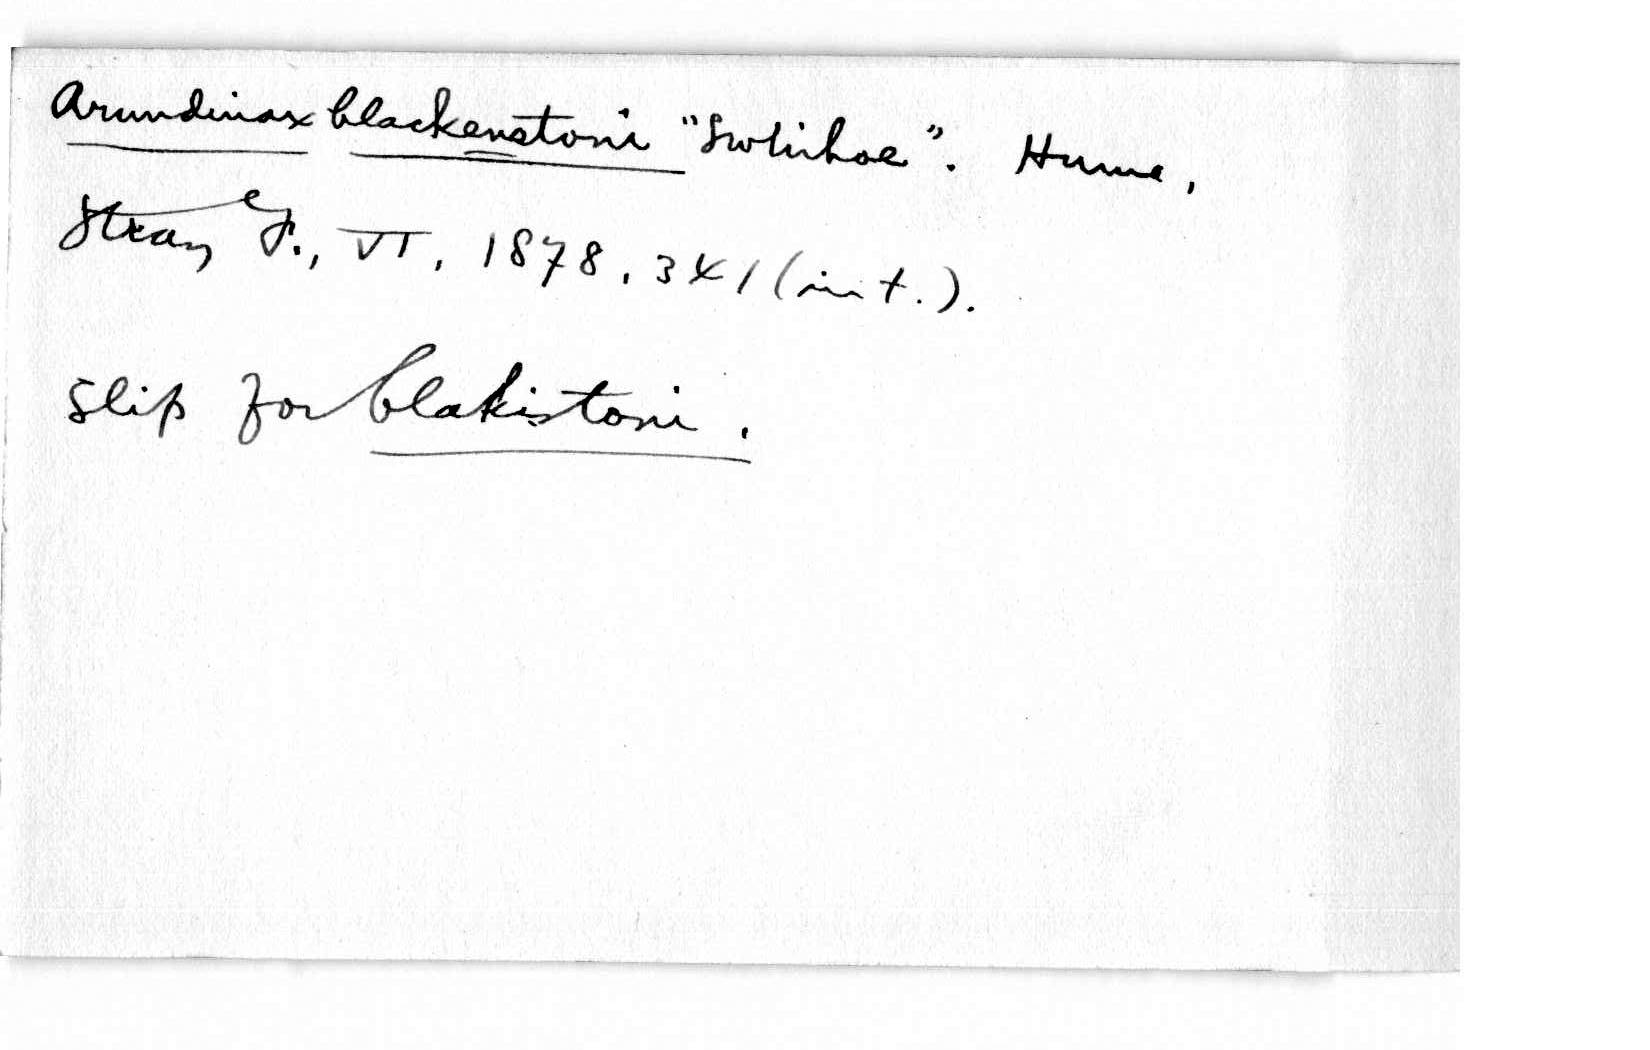 Arundinax blackenstoni "Swinhoe". Hume,
Stray F., VI, 1878, 341 (in t.).
Slip for blakistoni.